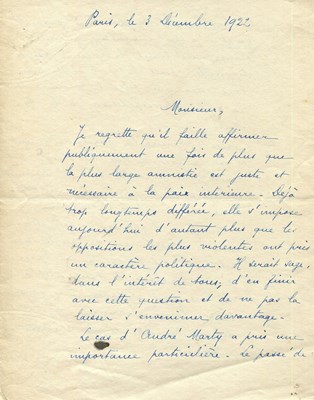 Paris, le 3 Décembre 1922
Monsieur,
Je regrette qu'il faille affirmer
publiquement une fois de plus que
la plus large amnistie est juste et
nécessaire à la paix intérieure. Déjà
trop longtemps différée, elle s'impose
aujourd'hui d'autant plus que les
oppositions les plus violentes ont pris
un caractère politique. Il serait sage,
dans l'intérêt de tous, d'en finir
avec cette question et de ne pas la
laisser s'envenimer davantage.
Le cas d'André Marty a pris une
importance particulière. Le passé de